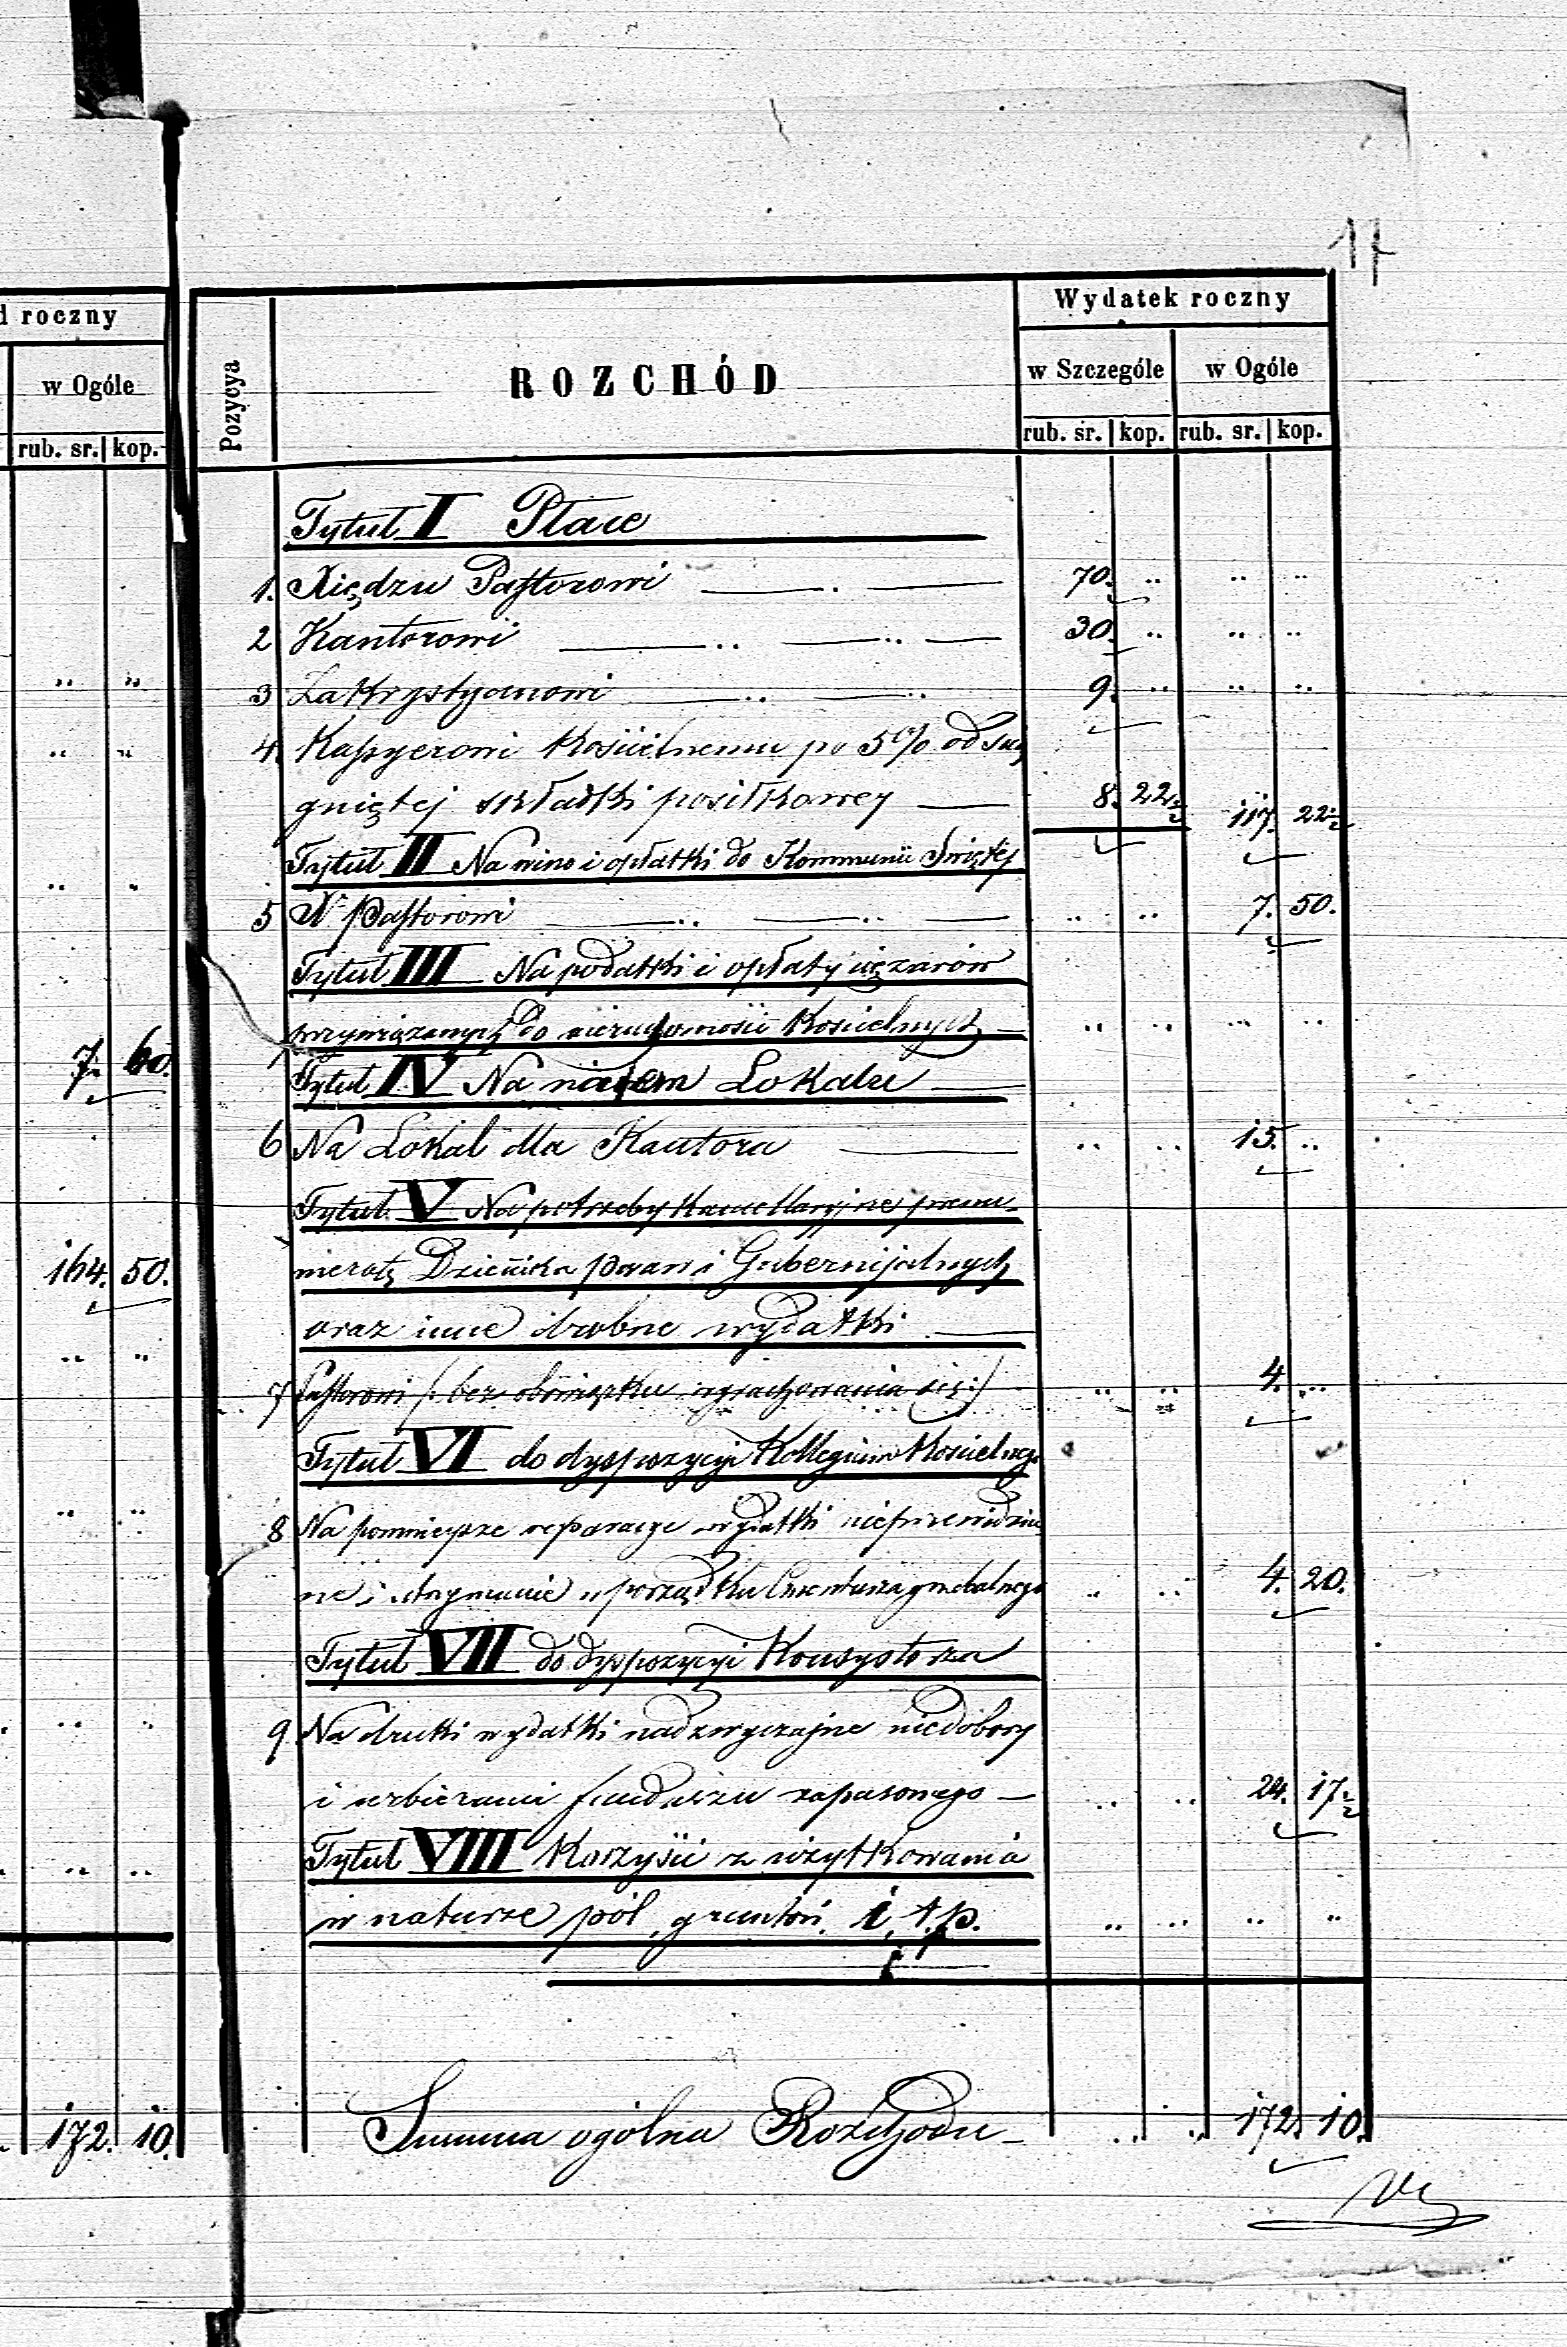 17
d roczny
w Ogóle
rub. sr. kop.
7. 60.
164. 50.
172. 10.
Wydatek roczny
Pozycya ROZCHÓD w Szczególe w Ogóle
rub. sr. kop. rub. sr. kop.
Tytuł I Płace
1. Xiędzu Pastorowi 70. .. .. ..
2 Kantorowi 30. .. .. ..
3 Zakrystyanowi 9. .. .. ..
4. Kassyerowi Kościelnemu po 5% od
gniętej składki posiłkowey 8. 22½ 117. 22½
Tytuł II Na wino i opłatki do Kommunii Świętej
5 X Pastorowi .. .. 7. 50.
Tytuł III Na podatki i opłaty ciężarów
przywiązanych do nieruchomości Kościelnych .. .. .. ..
Tytuł IV Na najem Lokalu
6 Na Lokal dla Kantora .. .. 15. ..
Tytuł V Na potrzeby Kancellaryjne prenu-
meratę Dziennika Gubernijalnych
oraz inne drobne wydatki
7 Pastorowi (: bez obowiązku wyrachowania się :) .. .. 4. ..
Tytuł VI do dyspozycyi Kollegium Kościelnego
8 Na pomniejsze reparacye wydatki nieprzewidzia
ne i utrzymanie w porządku Cmentarza grzebalnego .. .. 4. 20.
Tytuł VII do dyspozycyi Konsystorza
9 Na druki wydatki nadzwyczajne niedobory
i uzbieranie funduszu zapasowego .. .. 24. 17½
Tytuł VIII Korzyści z użytkowania
w naturze pól, gruntów, i t.p. .. .. .. ..
Summa ogólna Rozchodu .. .. 172. 10.